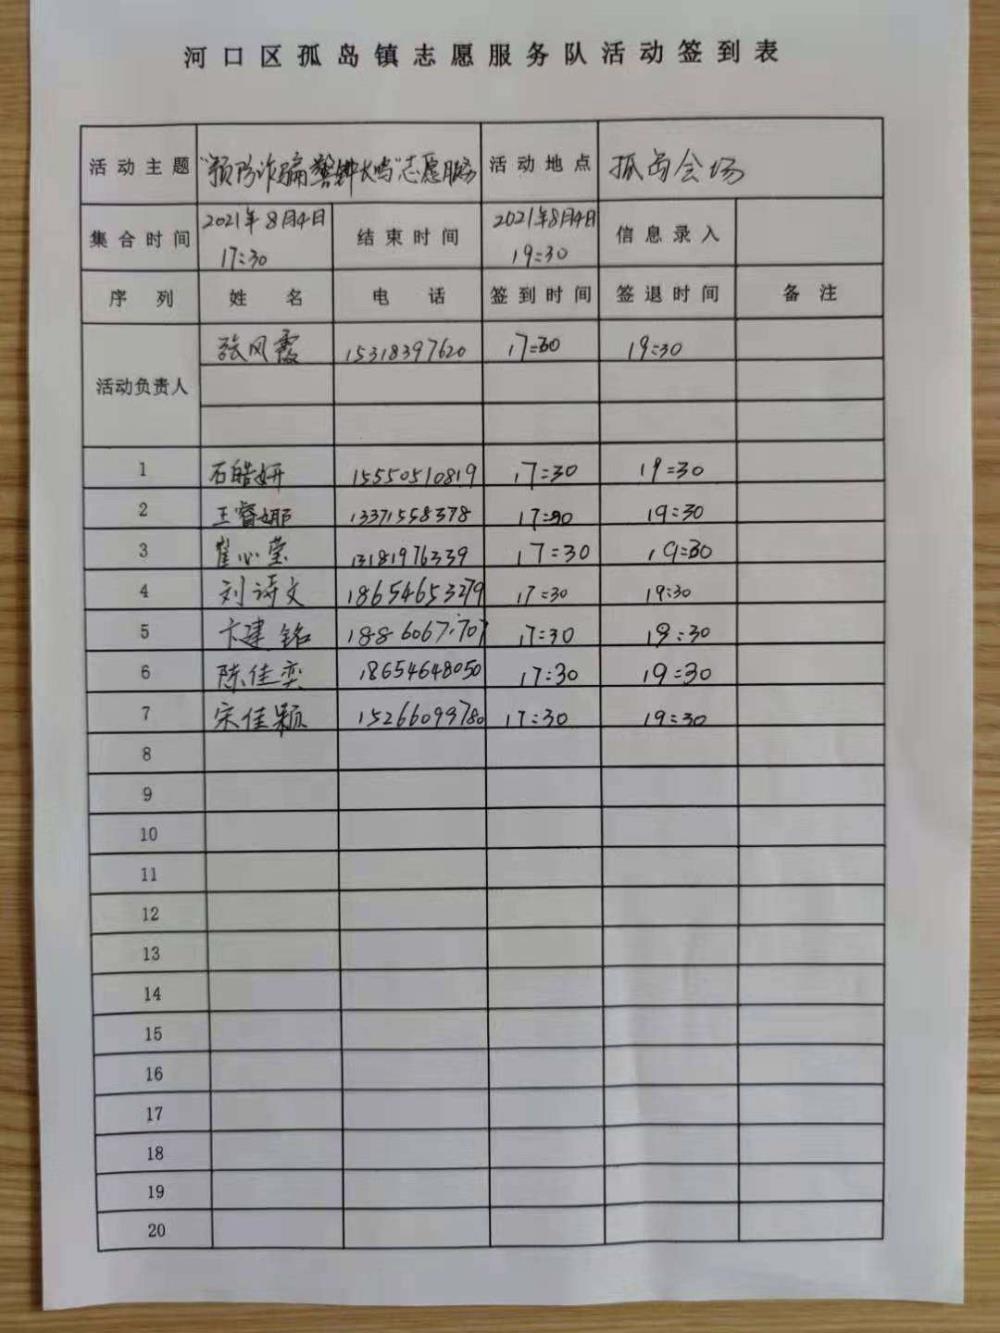 河口区孤岛镇志愿服务队活动签到表
活动主题 “预防诈骗 警钟长鸣”志愿服务 活动地点 孤岛会场
集合时间 2021年8月4日 17:30 结束时间 2021年8月4日 19:30 信息录入
序列 姓名 电话 签到时间 签退时间 备注
活动负责人 张风霞 15318397620 17:30 19:30
1 石皓妍 15550510819 17:30 19:30
2 王睿娜 13371558378 17:30 19:30
3 崔心莹 13181976339 17:30 19:30
4 刘诗文 18654653279 17:30 19:30
5 卞建铭 17:30 19:30
6 陈佳奕 18654648050 17:30 19:30
7 宋佳颖 15266099780 17:30 19:30
8
9
10
11
12
13
14
15
16
17
18
19
20